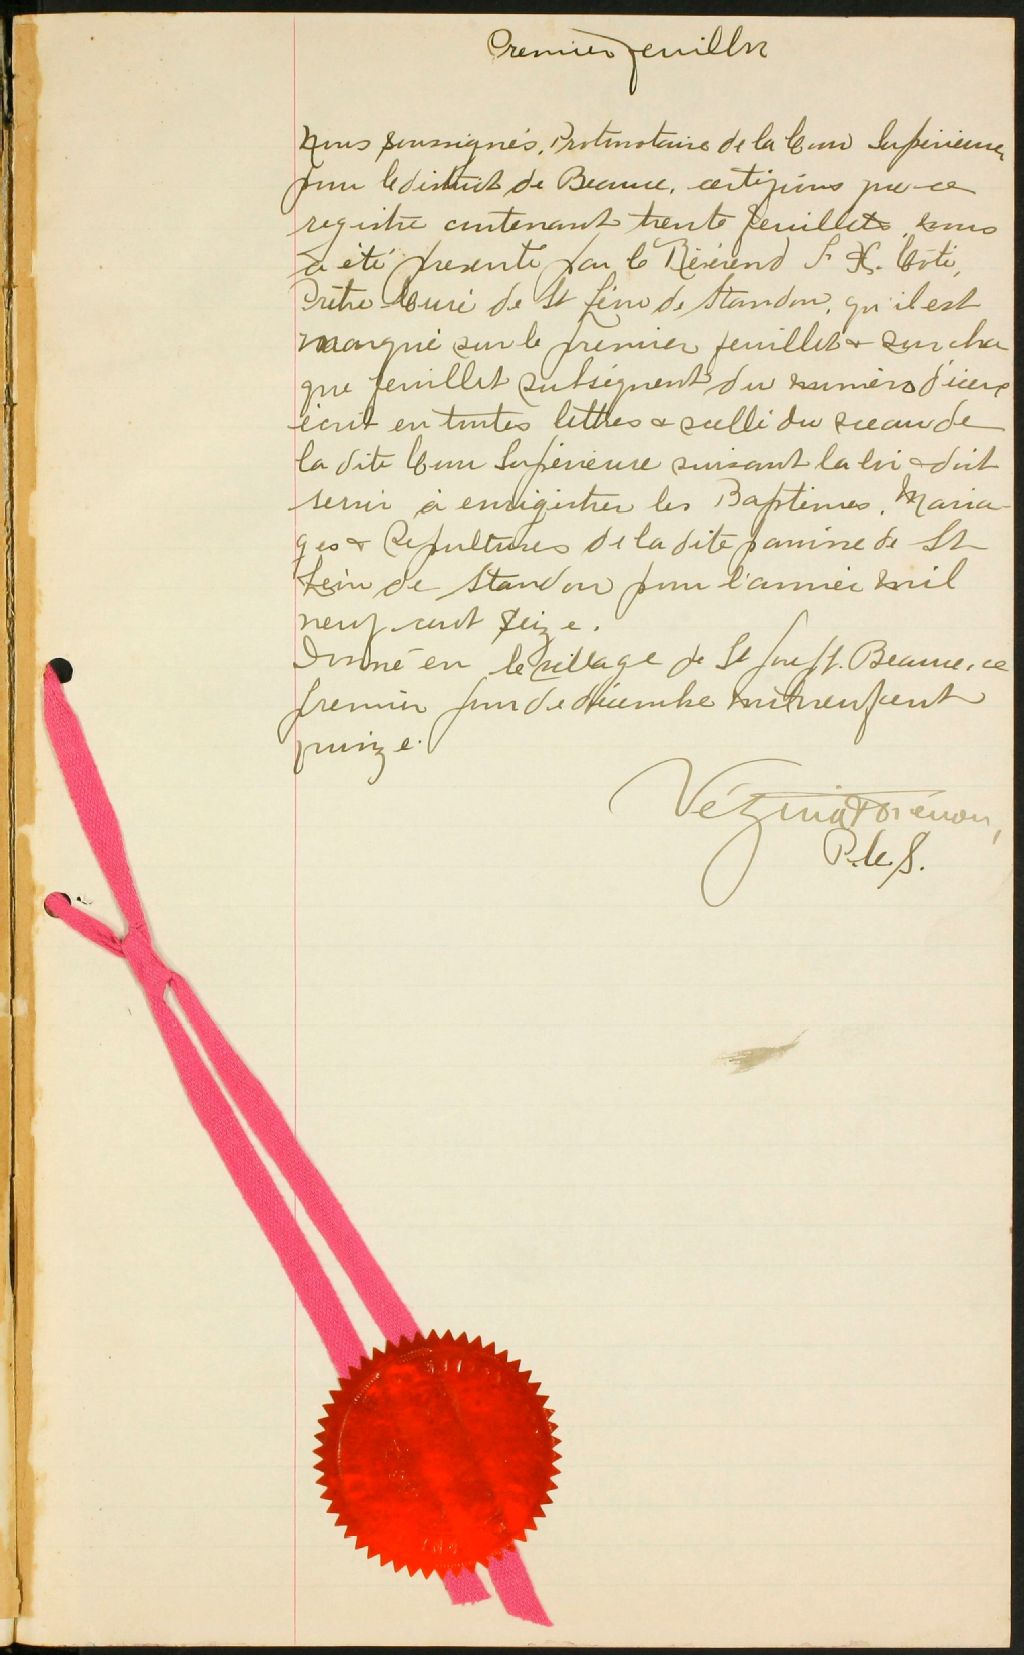 Premier feuillet
Nous soussignés, Protonotaire de la Cour Supérieure
pour le district de Beauce, certifions que ce
registre contenant trente feuillets, nous
a été présenté par le Révérend F. X. Coté,
Prêtre Curé de St Léon de Standon, qu'il est
marqué sur le premier feuillet & sur cha
que feuillet subséquent du numéro d'iceux
écrit en toutes lettres & scellé du sceau de
la dite Cour Supérieure suivant la loi & doit
servir à enrégistrer les Baptêmes, Maria-
ges & Sépultures de la dite paroisse de St
Léon de Standon pour l'année mil
neuf cent seize.
Donné en le village de St Joseph, Beauce, ce
premier jour de décembre mil neuf cent
quinze.
Vézina &
P.C.S.